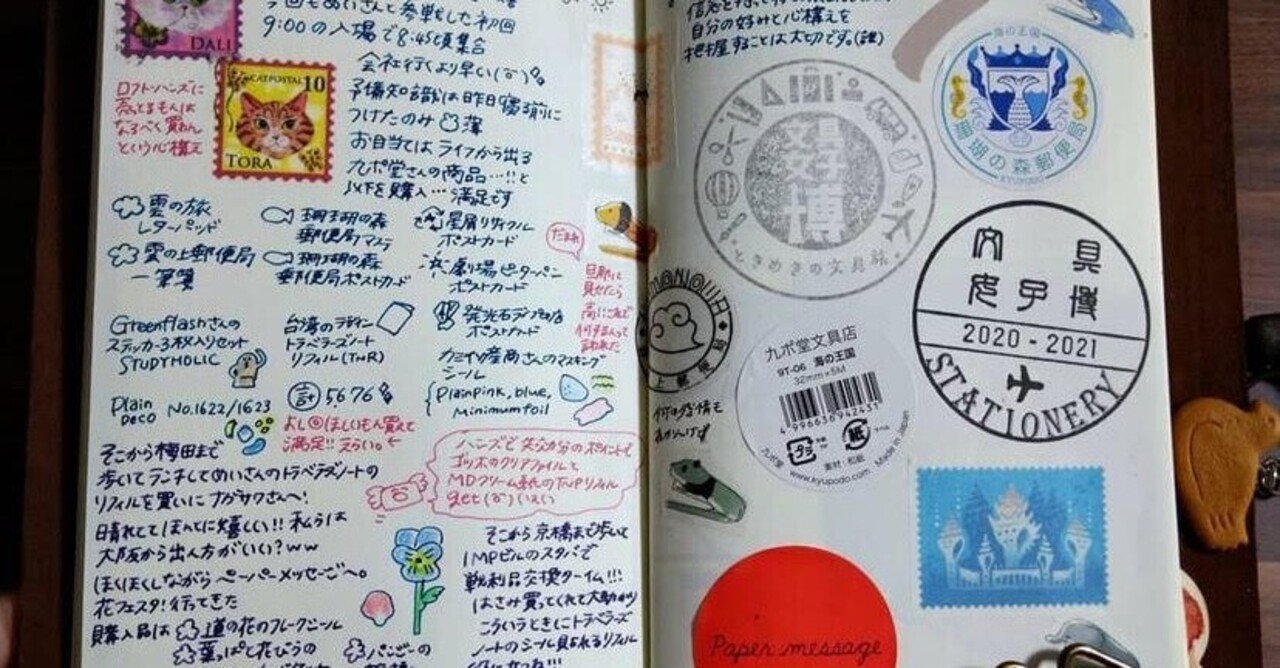 DALI
今回もめいさんと参戦した初回
9:00の入場で8:45頃集合
会社行くより早い
CATPOSTAL 10
TORA
ロフトハンズに
売っとるもんは
なるべく買わん
という心構え
予備知識は昨日寝る前に
つけたのみ
お目当てはライフから出る
九ポ堂さんの商品…!!と
以下を購入…満足です
雲の旅
レターパッド
珊瑚の森
郵便局マステ
星屑リサイクル
ポストカード
雲の上郵便局
一筆箋
珊瑚の森
郵便局ポストカード
劇場ピーターパン
ポストカード
Greenflashさんの
ステッカー3枚入りセット
STUDYHOLIC
台湾のデザイン
トラベラーズノート
リフィル(TNR)
発光石
ポストカード
だまれ
旦那に
見せたら
言われた
Plain Deco No.1622/1623
計 5676
カミイソ産商さんのマスキング
シール
Plain pink, blue,
Minimum foil
よし ほしいもん買えて
満足!! えらい。
そこから梅田まで
歩いてランチしてめいさんのトラベラーズノートの
リフィルを買いにナガサワさんへ!
晴れててほんとに嬉しい!! 私らは
大阪から出ん方がいい?ww
ほくほくしながらペーパーメッセージへ。
花フェスタ!行ってきた
購入品は 道の花のフレークシール
葉っぱと花びらの
パンジーの
ハンズで 欠分分のポイントで
ゴッホのクリアファイルと
MDクリーム紙のTNRリフィル
get いぇい
そこから京橋まで歩いて
IMPビルのスタバで
戦利品交換タイム!!!
はさみ買ってくれて大助かり
こういうときにトラベラーズ
ノートのシール見られるリフィル
自分の好みと心構えを
把握することは大切です。(謎)
文具
女子
博
ときめきの文具旅
海の王国
珊瑚の森郵便局
KYUPODO
上郵便局
文具
女子博
2020-2021
STATIONERY
九ポ堂文具店
9T-06 海の王国
32mm×5M
4996630942431
プラ
紙
ラベル
九ポ堂
素材:和紙
Made in Japan
www.kyupodo.com
何の感情も
Paper message